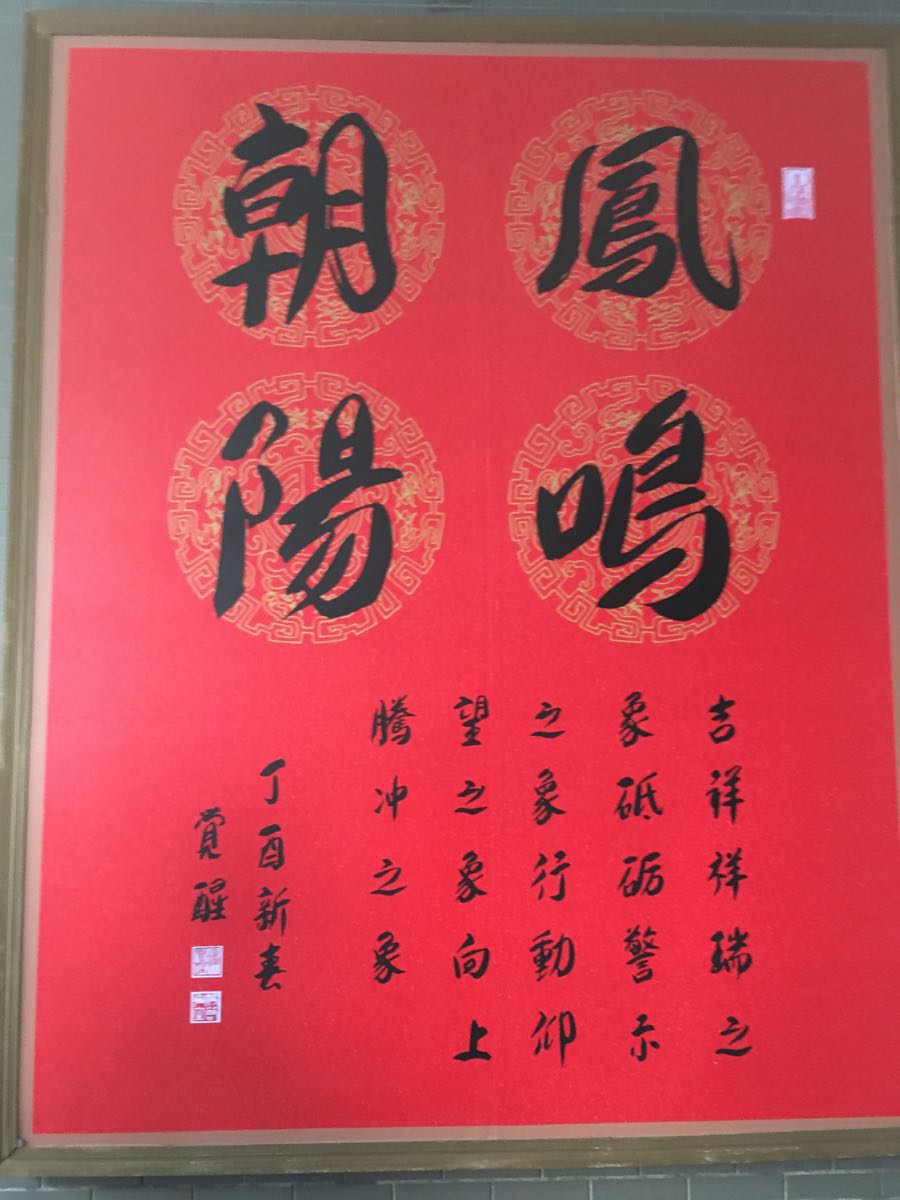 鳳鳴
朝陽
吉祥祥瑞之
象砥砺警示
之象行動仰
望之象向上
騰冲之象
丁酉新春
覚醒